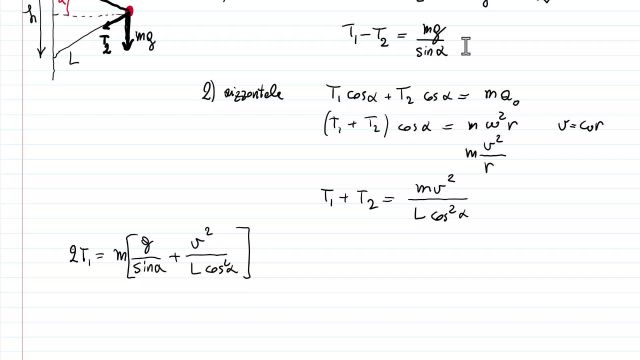 h
α
T₂
mg
L
T₁ - T₂ = mg / sinα
2) orizzontale T₁ cosα + T₂ cosα = m a₀
(T₁ + T₂) cosα = m ω² r v = ωr
m v² / r
T₁ + T₂ = mv² / L cos²α
2T₁ = m[g / sinα + v² / L cos²α]